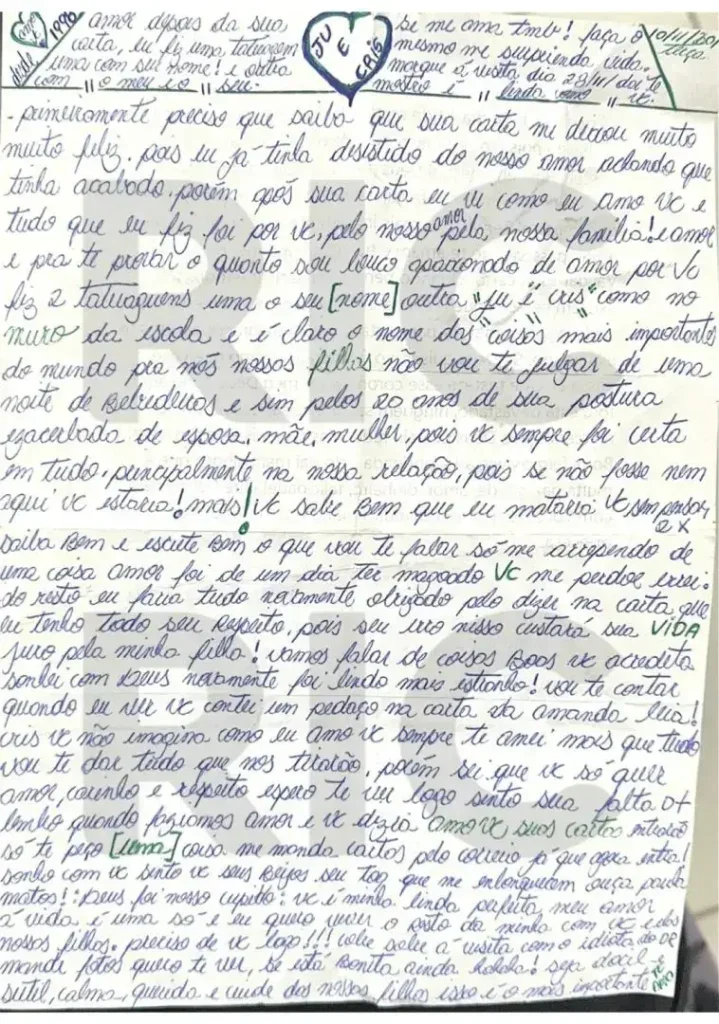 amor 1996
desde
amor depois da sua
carta, eu fiz uma tatuagem
uma com seu nome! e outra
com " o meu e o " seu.
JU
E
CRIS
se me ama tmb! faça o
mesmo me surprienda vida.
marque a visita dia 28/11/ dai te
mostro é " lindo vc.
10/11/20
terça
- primeiramente preciso que saiba que sua carta me deixou muito
muito feliz. pois eu já tinha desistido do nosso amor achando que
tinha acabado. porém após sua carta eu vi como eu amo vc e
tudo que eu fiz foi por vc, pelo nosso amor pela, nossa família! e amor
e pra te provar o quanto sou louco apaixonado de amor por Vc
fiz 2 tatuaguens uma o seu [nome] outra "ju e cris" como no
muro da escola e é claro o nome das coisas mais importantes
do mundo pra nós nossos filhos não vou te julgar de uma
noite de Bebedeiras e sim pelos 20 anos de sua postura
exacerbada de esposa, mãe, mulher, pois vc sempre foi certa
em tudo. principalmente na nossa relação, pois se não fosse nem
aqui vc estaria! mais! vc sabe Bem que eu mataria vc sem pensar
2x
saiba Bem e escute Bem o que vou te falar só me arrependo de
uma coisa amor foi de um dia ter magoado VC me perdoe errei.
do resto eu faria tudo novamente obrigado pelo dizer na carta que
eu tenho todo seu Respeito, pois seu erro nisso custará sua VIDA
juro pela minha filha! vamos falar de coisas Boas vc acredita
sonhei com Deus novamente foi lindo mais estranho! vou te contar
quando eu ver vc contei um pedaço na carta da amanda leia!
cris vc não imagina como eu amo vc sempre te amei mais que tudo
vou te dar tudo que nos tirarão, porém sei que vc só quer
amor, carinho e respeito espero te ver logo sinto sua falta D+
lembro quando faziamos amor e vc dizia amo Vc suas cartas entrarão
só te peço [uma] coisa me manda cartas pelo correio já que agora entra!
sonho com vc sinto vc seus Beijos seu toq. que me enlouquecem ouça paula
matos! "Deus foi nosso cupitto" vc é minha linda perfeita, meu amor
a vida é uma só e eu quero viver o resto da minha com vc e dos
nossos filhos. preciso de vc logo!!! sobre a visita com o idiota do DE
mande fotos quero te ver, se está Bonita ainda hahaha! seja docil e
sutil, calma, querida e cuide dos nossos filhos isso é o mais importante
RIC
RIC